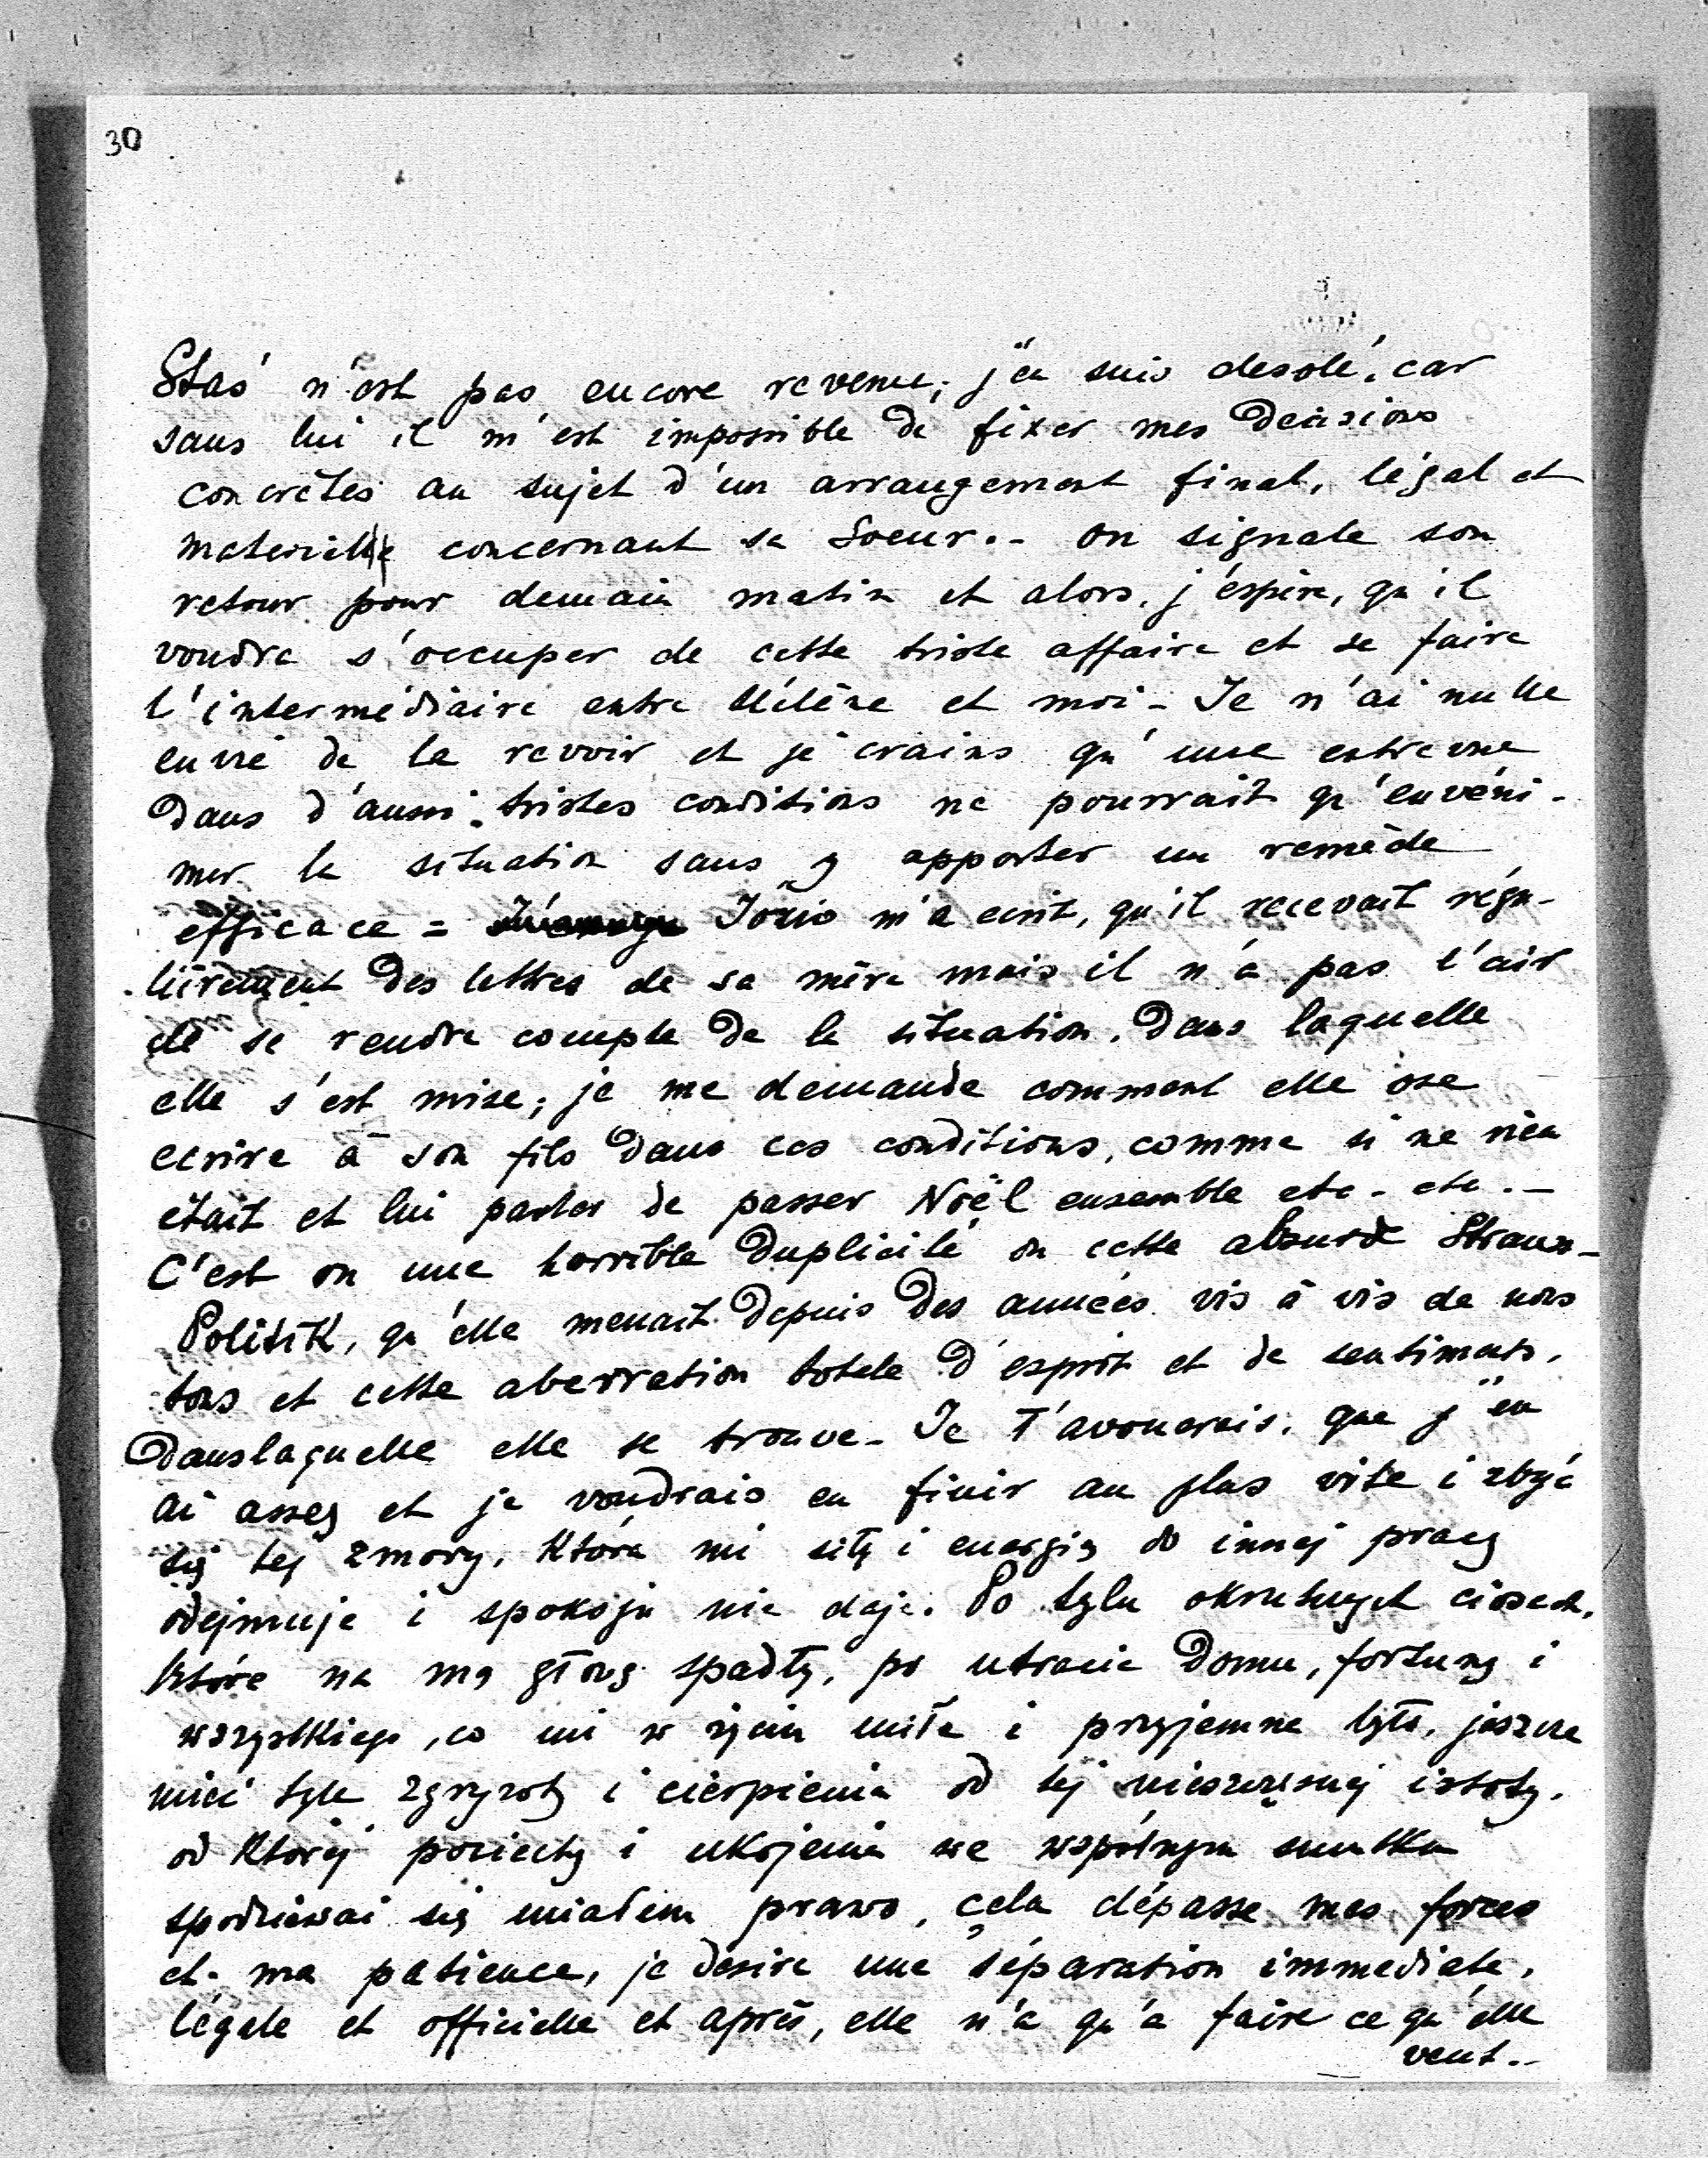 30
Staś n'est pas encore revenu; j'en suis desolé, car
sans lui il m'est impossible de fixer mes decisions
concrètes au sujet d'un arrangement final, légal et
materiel concernant sa Soeur.- On signale son
retour pour demain matin et alors, j'espère, qu'il
voudra s'occuper de cette triste affaire et se faire
l'intermédiaire entre Hélène et moi - Je n'ai nulle
envie de la revoir et je crains qu'une entrevue
dans d'aussi tristes conditions ne pourrait qu'envéni-
mer la situation sans y apporter un remède
efficace = m'a ecrit, qu'il recevait régu-
lièrement des lettres de sa mère mais il n'a pas l'air
de se rendre compte de la situation, dans laquelle
elle s'est mise; je me demande comment elle ose
ecrire à son fils dans ces conditions, comme si ne rien
était et lui parler de passer Noël ensemble etc. etc.-
C'est ou une horrible duplicité ou cette absurde Strauss-
Politik, qu'elle menait depuis des années vis à vis de nous
tous et cette aberration totale d'esprit et de sentiments,
dans laquelle elle se trouve - Je T'avouerais, que j'en
ai assez et je voudrais en finir au plus vite i zbyć
się tej zmory, która mi siłę i energię do innej pracy
odejmuje i spokoju nie daje. Po tylu okrutnych ciosach,
które na mą głowę spadły, po utracie domu, fortuny i
wszystkiego, co mi w życiu miłe i przyjemne było, jeszcze
mieć tyle zgryzoty i cierpienia od tej nieszczęsnej istoty,
od której pociechy i ukojenia we wspólnym smutku
spodziewać się miałem prawo, cela dépasse mes forces
et ma patience, je désire une séparation immediate,
légale et officielle et après, elle n'a qu'a faire ce qu'elle
veut.-